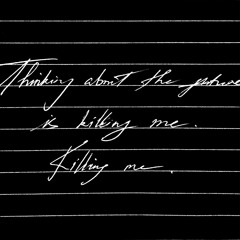 Thinking about the future
is killing me.
Killing me.